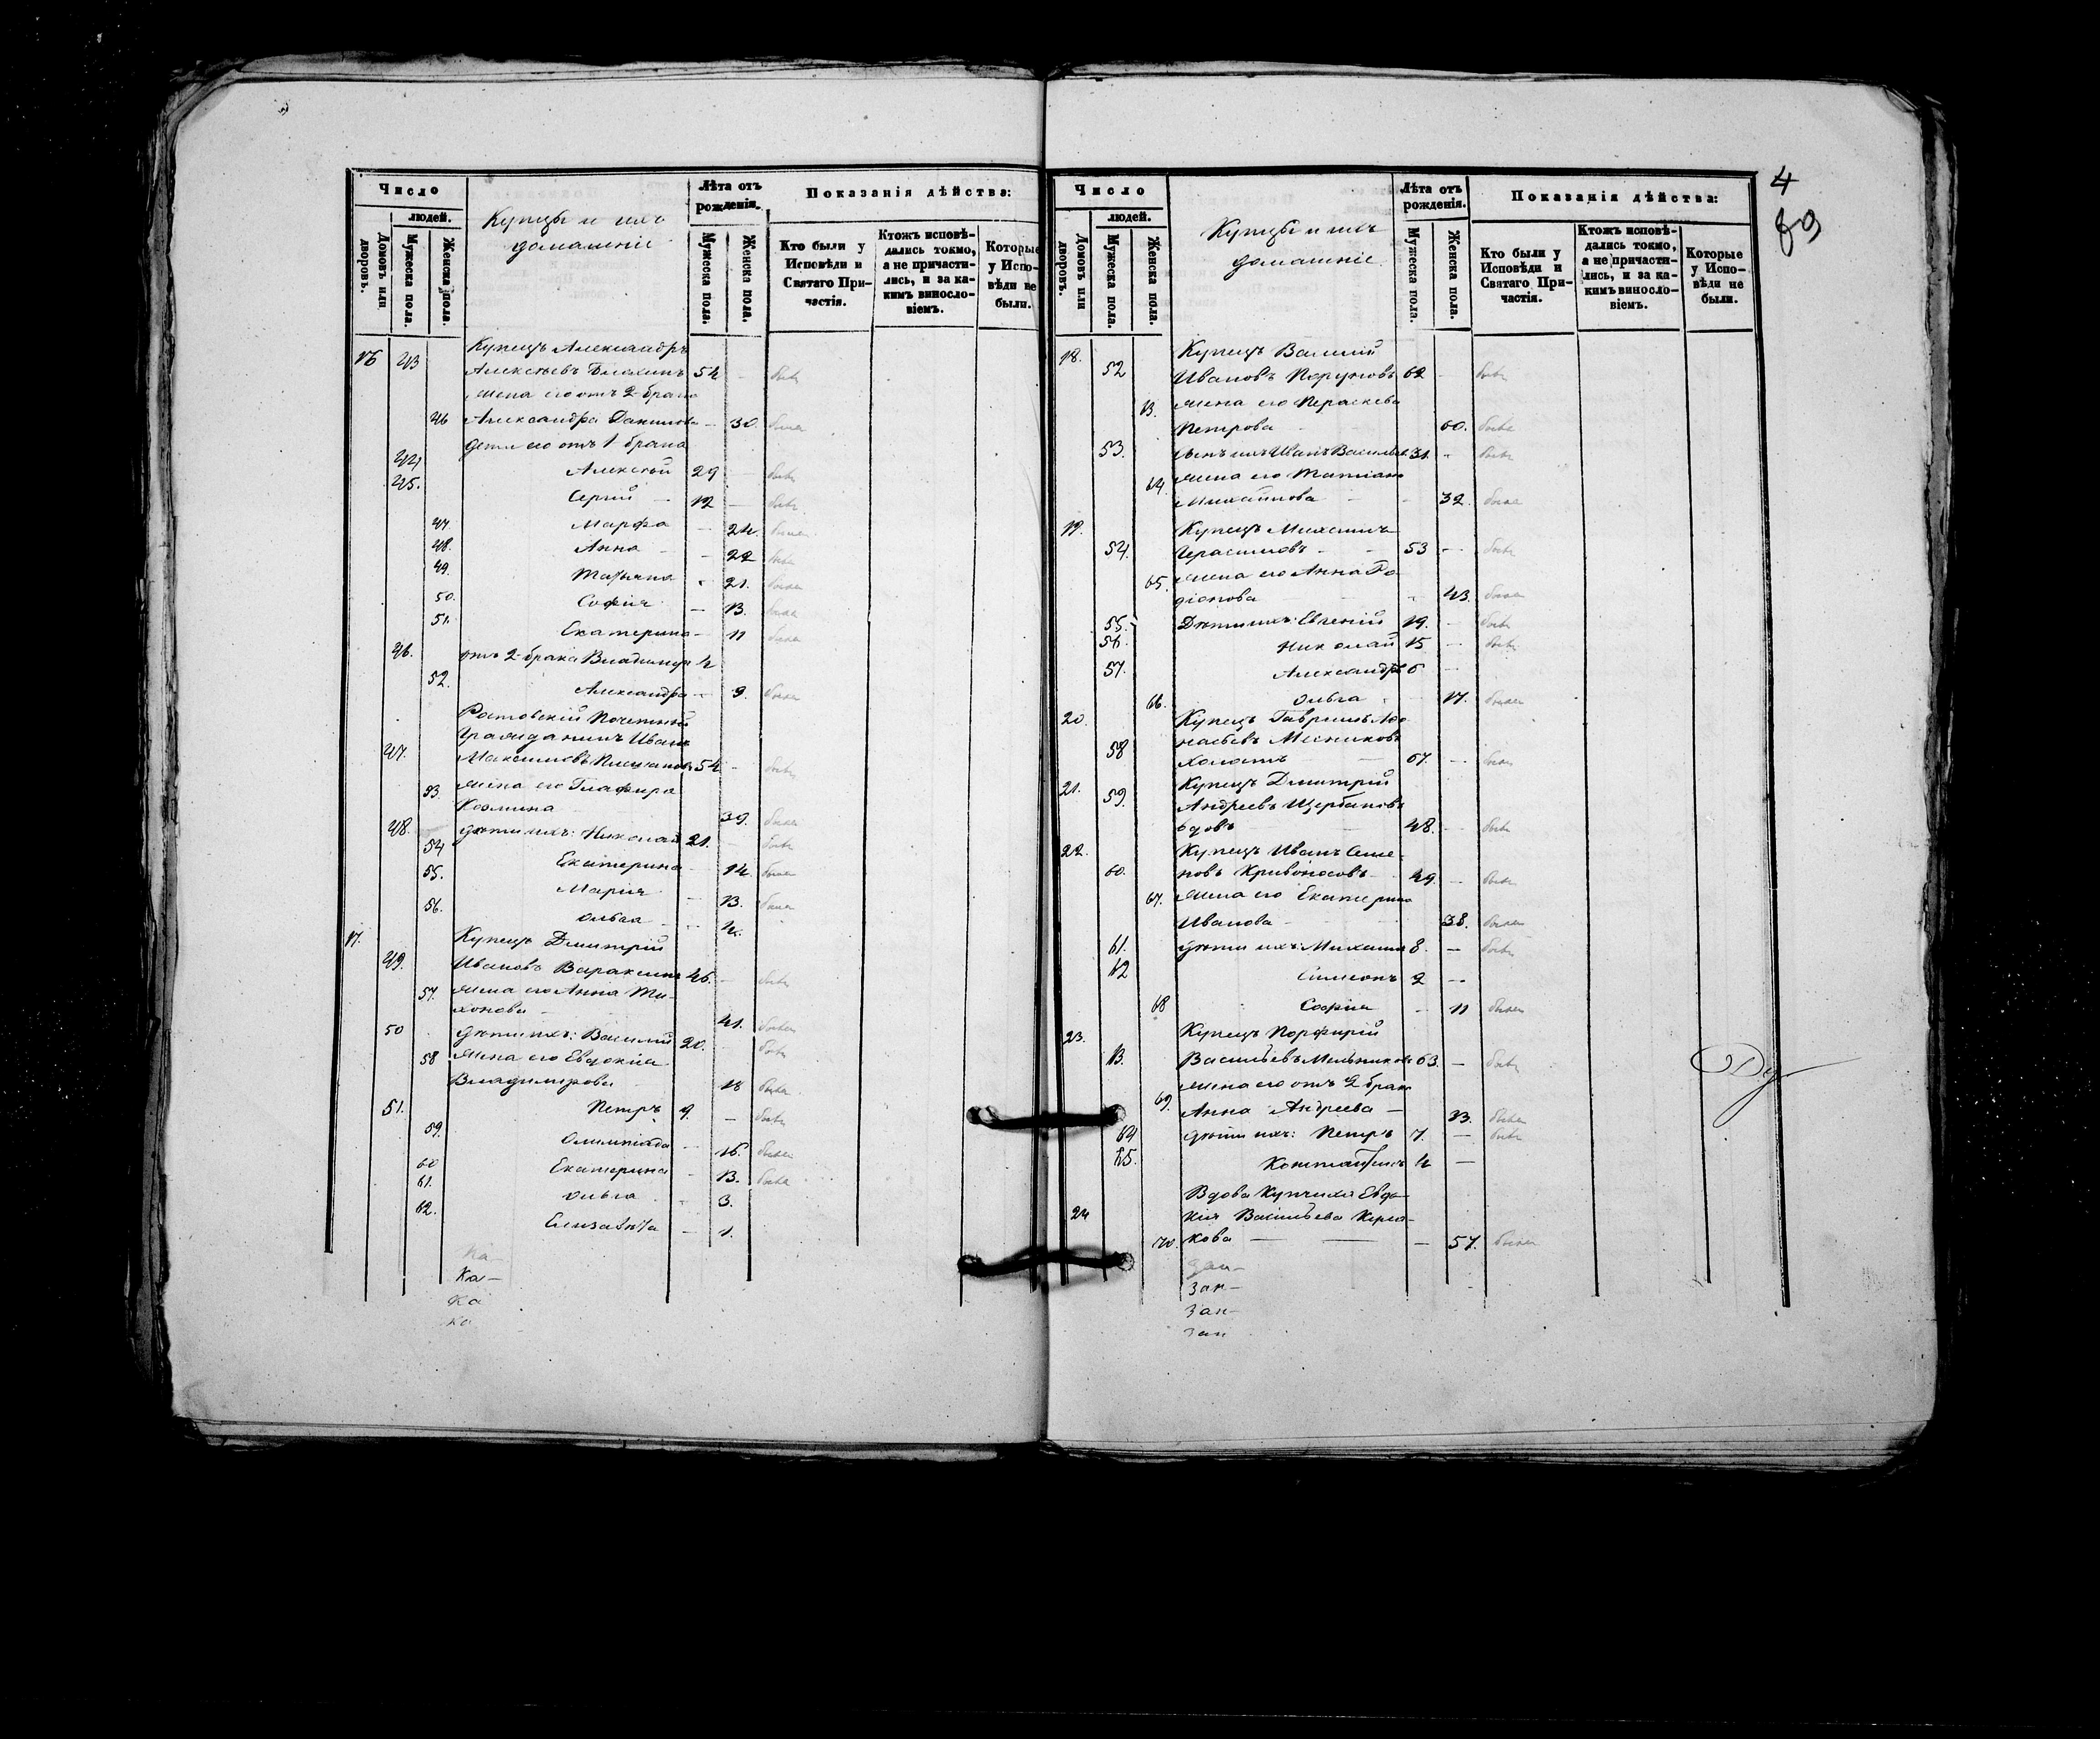 Число
людей.
Домовъ или дворовъ.
Мужеска пола.
Женска пола.
Купцы и ихъ
домашніе
Лѣта отъ
рожденія.
Мужеска пола.
Женска пола.
Показанія дѣйства:
Кто были у
Исповѣди и
Святаго При-
частія.
Ктожъ исповѣ-
дались токмо,
а не причасти-
лись, и за ка-
кимъ виносло-
віемъ.
Которые
у Испо-
вѣди не
были.
Купецъ Александръ
16 43 Алексѣевъ 54 - былъ
жена его отъ 2 брака
46 Александра Данилова - 30. была
дети его отъ 1 брака
44 Алексѣй 29 - былъ
45. Сергій - 12 - былъ
47. Марфа - 24. была
48. Анна - - 22 была
49. Татьяна - 21. была
50. Софія - 13. была
51. Екатерина - 11 была
46. отъ 2 брака Владимиръ 4
52. Александра - 9. была
Ростовскій Почетный
Гражданинъ Иванъ
47. Максимовъ 54 - былъ
53. жена его Глафира
Козмина 39. была
48. дѣти ихъ: Николай 21. - былъ
54 Екатерина - 14. была
55. Марія - 13. была
56. Ольга - - 4.
17. Купецъ Дмитрій
49. Ивановъ Варакинъ 46. - былъ
57. жена его Анна Ти-
хонова - 41. была
50 дѣти ихъ: Василій 20. былъ
58 жена его Евдокія
Владимирова - 18 была
51. Петръ 9. - былъ
59. Олимпіада - 16. была
60 Екатерина - 13. была
61. Ольга - 3.
62. Елизавѣта - 1.
Ка-
Ка
Ка
4
89
Число
людей.
Домовъ или дворовъ.
Мужеска пола.
Женска пола.
Купцы и ихъ
домашніе
Лѣта отъ
рожденія.
Мужеска пола.
Женска пола.
Показанія дѣйства:
Кто были у
Исповѣди и
Святаго При-
частія.
Ктожъ исповѣ-
дались токмо,
а не причасти-
лись, и за ка-
кимъ виносло-
віемъ.
Которые
у Испо-
вѣди не
были.
18. Купецъ Василій
52 Ивановъ 62 - былъ
63. жена его Параскева
Петрова - 60. была
53. сынъ ихъ Иванъ Васильевъ 31. - былъ
64. жена его Татіана
Михайлова - - 32. была
19. Купецъ Михаилъ
54. Герасимовъ - - 53 - былъ
65. жена его Анна Ро-
діонова - - 43. была
55. Дѣти ихъ: Евгеній 19. - былъ
56. Николай 15 - былъ
57. Александръ 6 -
66. Ольга - 17. была
20. Купецъ Гавріилъ Афо-
насьевъ Мясниковъ
58 холостъ - 67. - былъ
21. Купецъ Дмитрій
59. Андреевъ Щербаковъ
вдовъ - 48. - былъ
22. Купецъ Иванъ Семе-
60. новъ Кривоносовъ - 49. - былъ
67. жена его Екатерина
Иванова - 38. была
61. дѣти ихъ: Михаилъ 8. - былъ
62 Симеонъ 2 -
68 Софія - 11 была
23. Купецъ Порфирій
63. Васильевъ Мельниковъ 63. - былъ
жена его отъ 2 брака
69. Анна Андреева - 33. была
64 дѣти ихъ: Петръ 7. - былъ
65. Константинъ 4 -
Вдова Купчиха Евдо-
24 кія Васильева
70. кова - - - 57. была
Зап-
Зап-
Зап